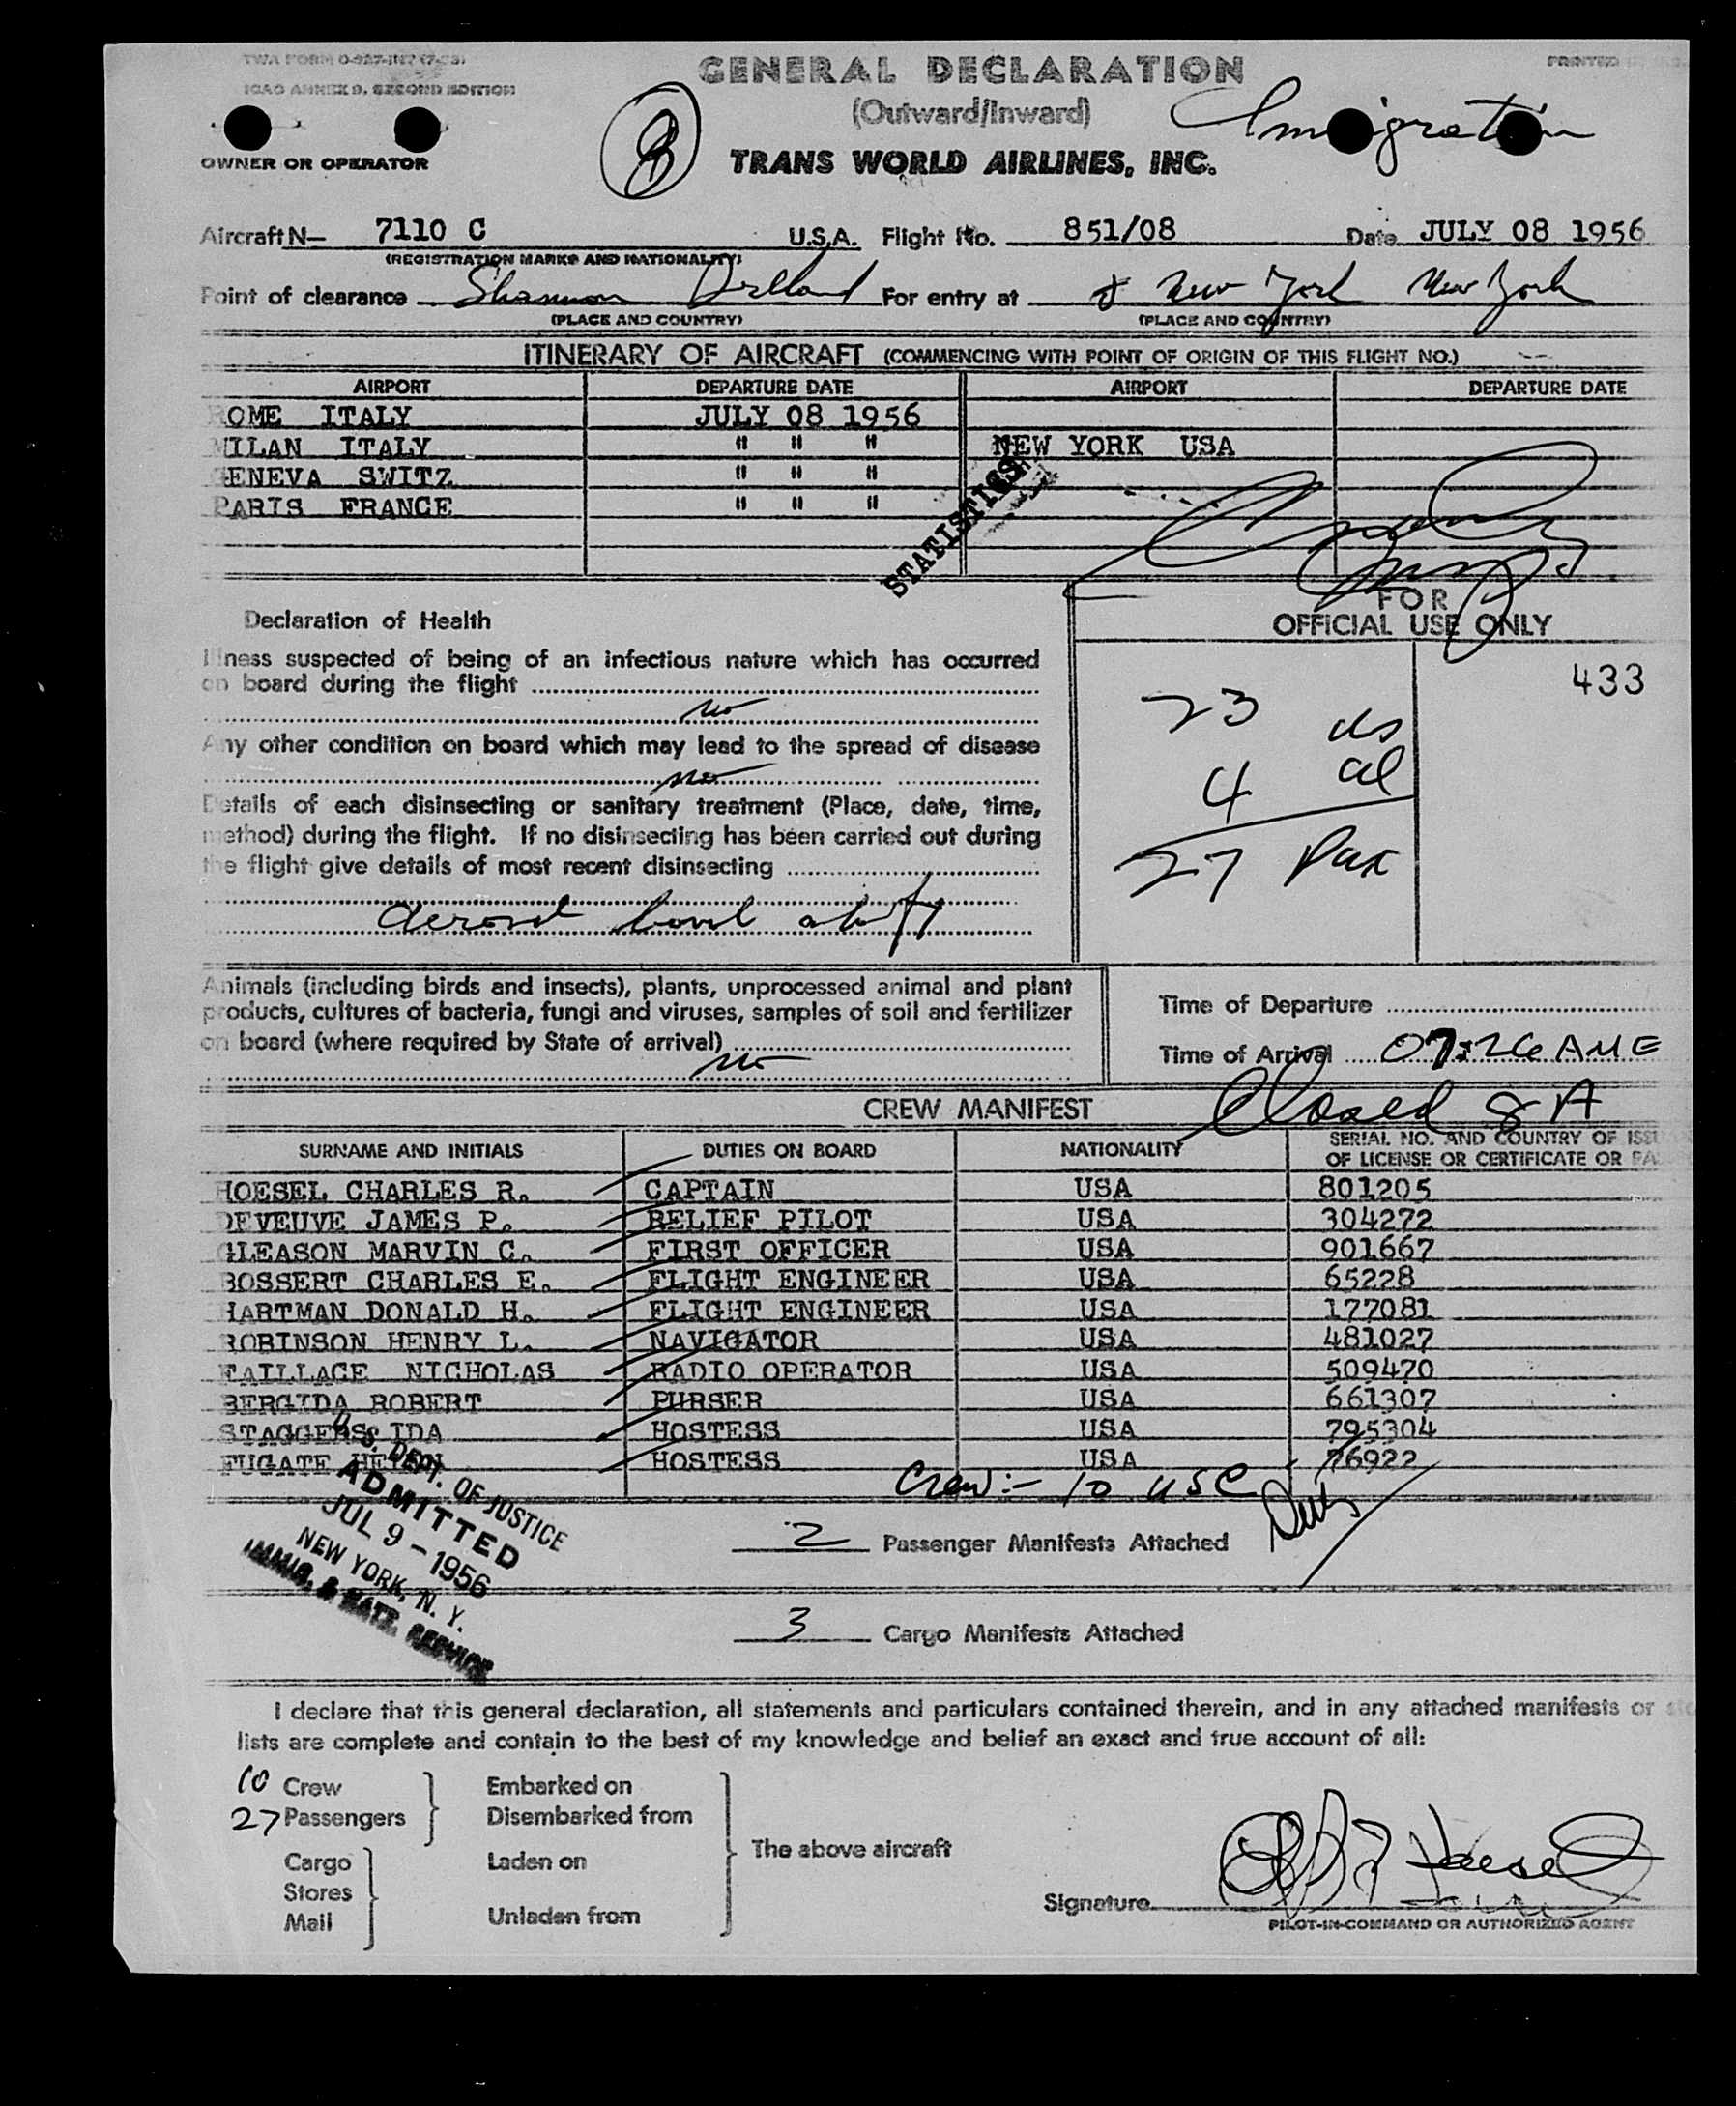 TWA FORM O-927-INT (7-53)
ICAO ANNEX 9, SECOND EDITION
PRINTED
GENERAL DECLARATION
(Outward/Inward)
Immigration
OWNER OR OPERATOR
TRANS WORLD AIRLINES, INC.
Aircraft N— 7110 C U.S.A. Flight No. 851/08 Date JULY 08 1956
(REGISTRATION MARKS AND NATIONALITY)
Point of clearance Shannon For entry at New York New York
(PLACE AND COUNTRY) (PLACE AND COUNTRY)
ITINERARY OF AIRCRAFT (COMMENCING WITH POINT OF ORIGIN OF THIS FLIGHT NO.)
AIRPORT DEPARTURE DATE AIRPORT DEPARTURE DATE
ROME ITALY JULY 08 1956
MILAN ITALY " " " NEW YORK USA
GENEVA SWITZ " " "
PARIS FRANCE " " "
STATISTICS
FOR
OFFICIAL USE ONLY
433
23 us
4 al
27 Pax
Declaration of Health
Illness suspected of being of an infectious nature which has occurred
on board during the flight
no
Any other condition on board which may lead to the spread of disease
no
Details of each disinsecting or sanitary treatment (Place, date, time,
method) during the flight. If no disinsecting has been carried out during
the flight give details of most recent disinsecting
Aerosol bomb
Animals (including birds and insects), plants, unprocessed animal and plant
products, cultures of bacteria, fungi and viruses, samples of soil and fertilizer
on board (where required by State of arrival)
no
Time of Departure
Time of Arrival 07:26 AME
Closed 8 A
CREW MANIFEST
SURNAME AND INITIALS DUTIES ON BOARD NATIONALITY SERIAL NO. AND COUNTRY OF ISSU
OF LICENSE OR CERTIFICATE OR PA
HOESEL CHARLES R. CAPTAIN USA 801205
DEVEUVE JAMES P. RELIEF PILOT USA 304272
GLEASON MARVIN C. FIRST OFFICER USA 901667
BOSSERT CHARLES E. FLIGHT ENGINEER USA 65228
HARTMAN DONALD H. FLIGHT ENGINEER USA 177081
ROBINSON HENRY L. NAVIGATOR USA 481027
FAILLACE NICHOLAS RADIO OPERATOR USA 509470
BERGIDA ROBERT PURSER USA 661307
STAGGERS IDA HOSTESS USA 795304
FUGATE HELEN HOSTESS USA 76922
Crew:- 10 USC
U.S. DEPT. OF JUSTICE
ADMITTED
JUL 9 - 1956
NEW YORK, N. Y.
IMMIG. & NATZ. SERVICE
2 Passenger Manifests Attached
3 Cargo Manifests Attached
I declare that this general declaration, all statements and particulars contained therein, and in any attached manifests or sto
lists are complete and contain to the best of my knowledge and belief an exact and true account of all:
10 Crew Embarked on
27 Passengers Disembarked from
The above aircraft
Cargo Laden on
Stores
Mail Unladen from
Signature Hoesel
PILOT-IN-COMMAND OR AUTHORIZED AGENT